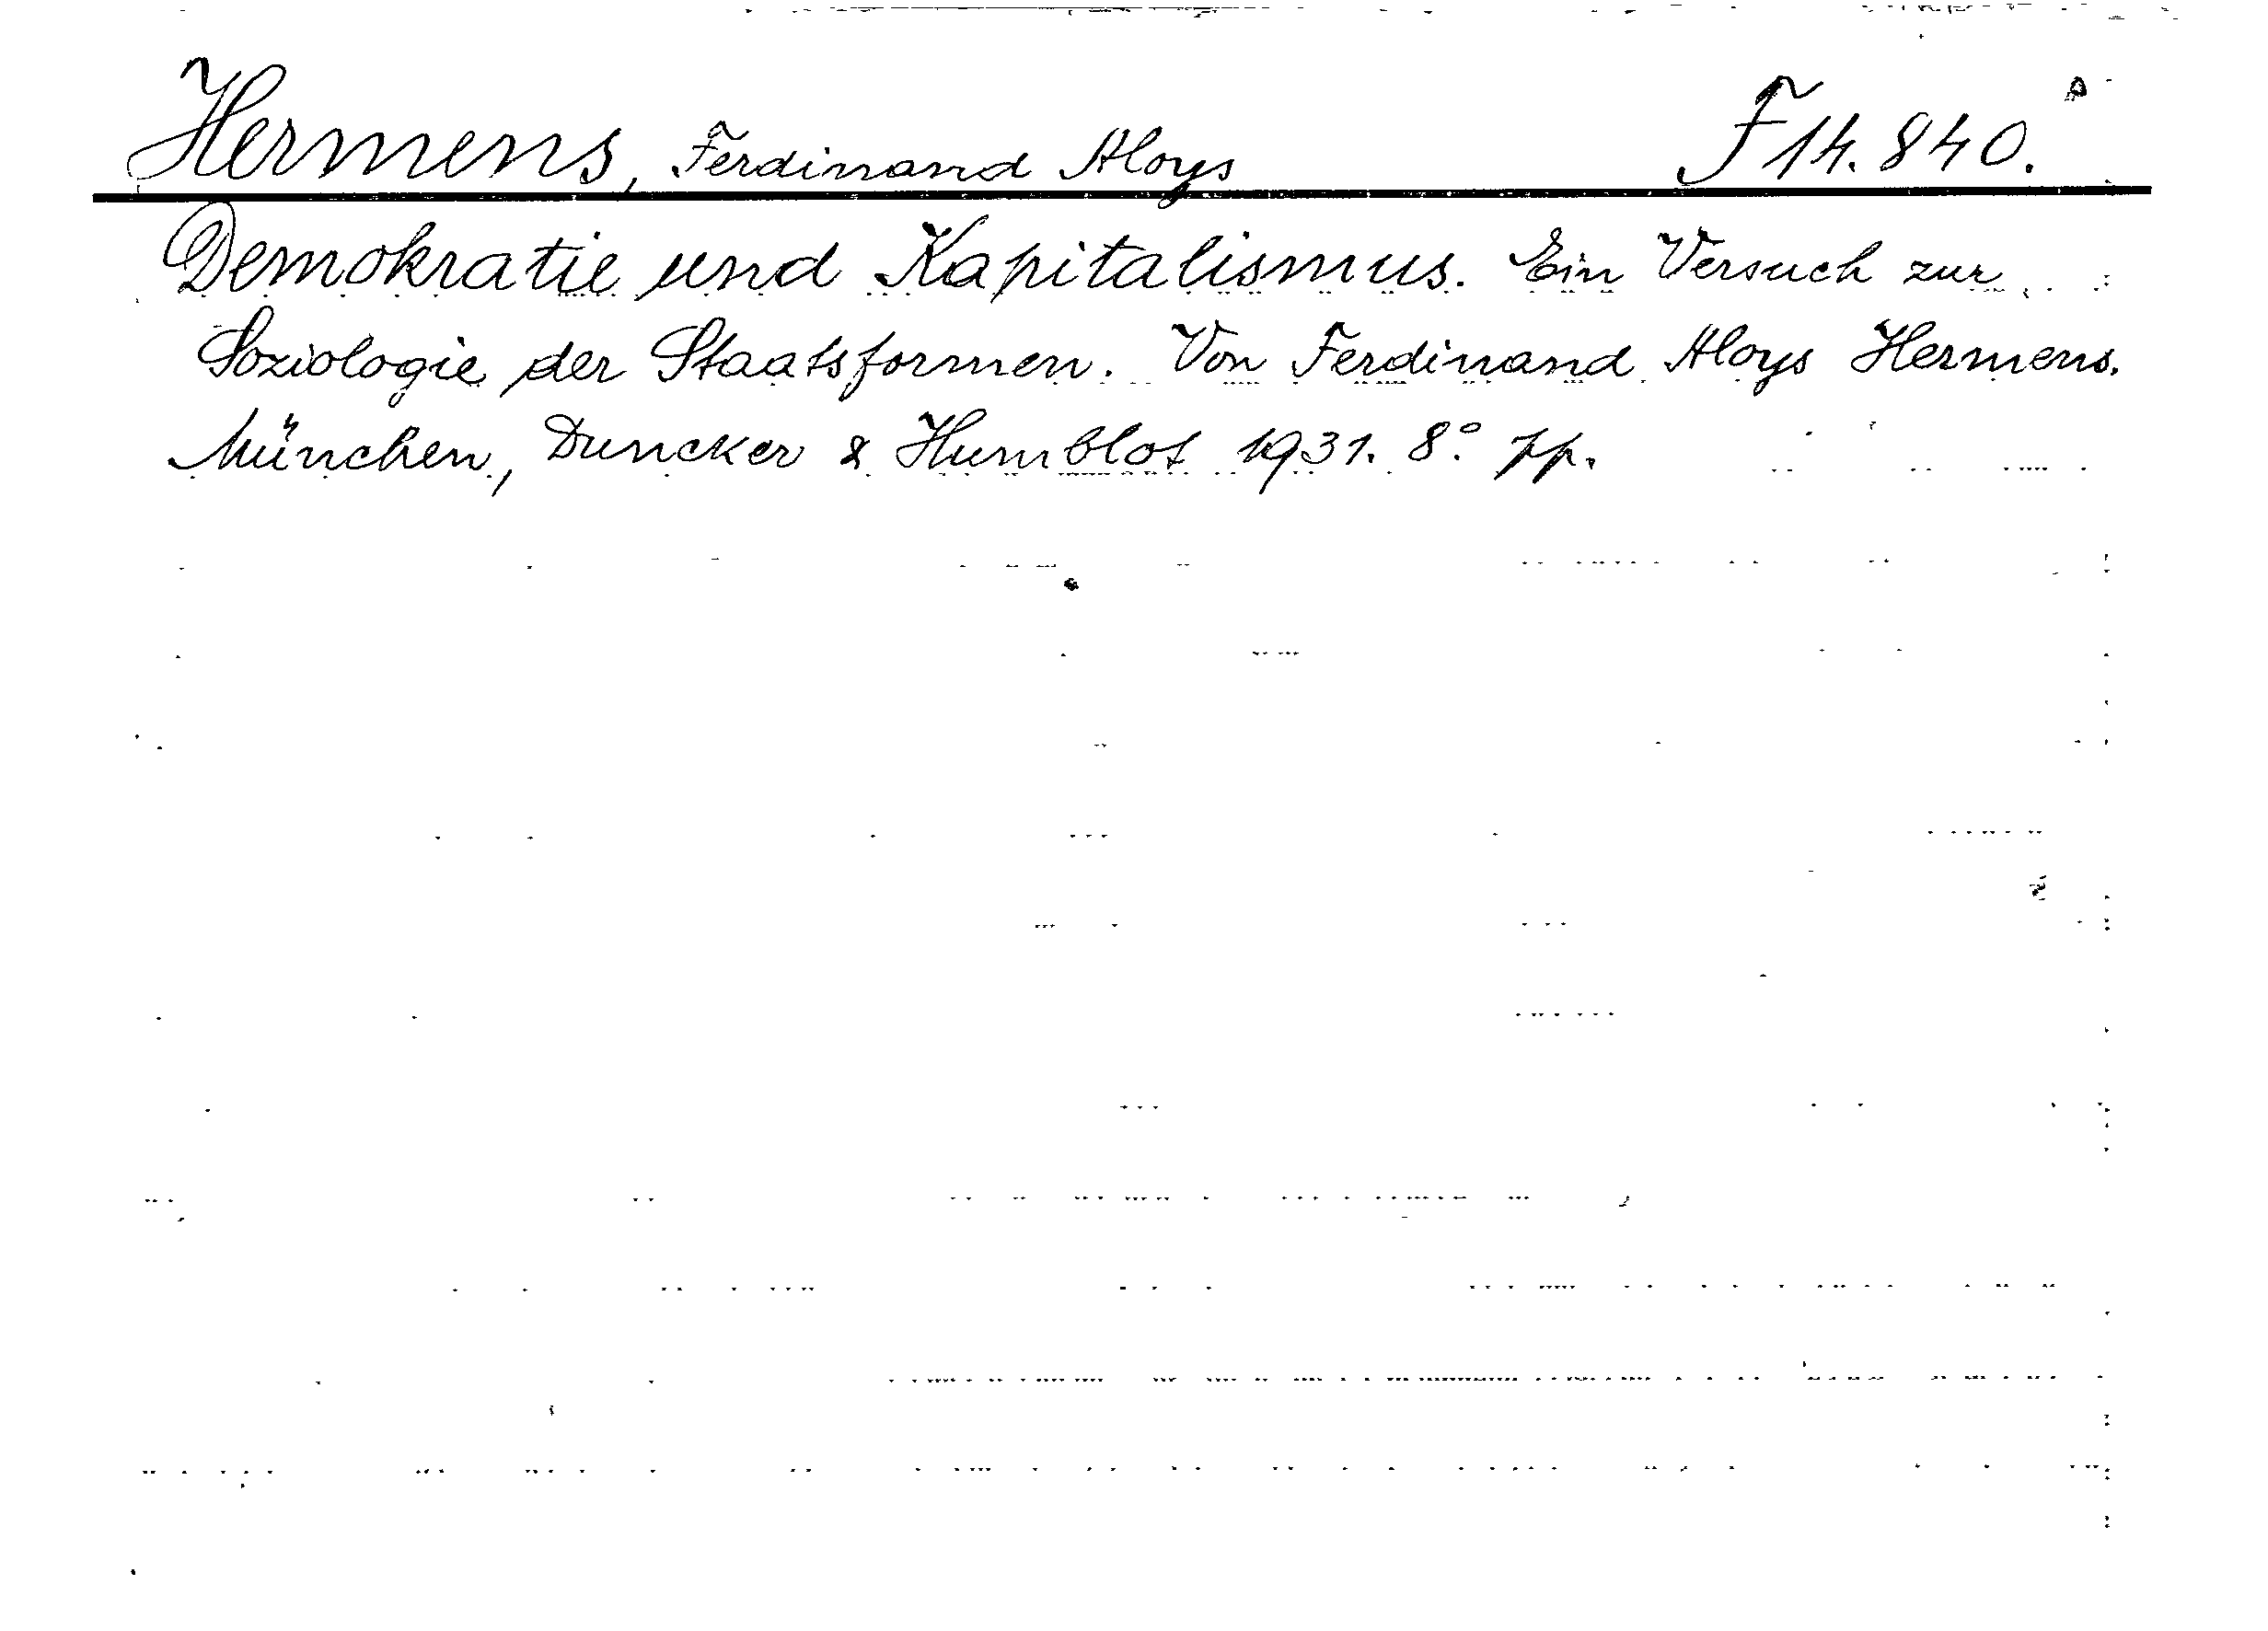 Hermens, Ferdinand Aloys F 14.840.
Demokratie und Kapitalismus. Ein Versuch zur
Soziologie der Staatsformen. Von Ferdinand Aloys Hermens.
München, Duncker & Humblot 1931. 8° pp.